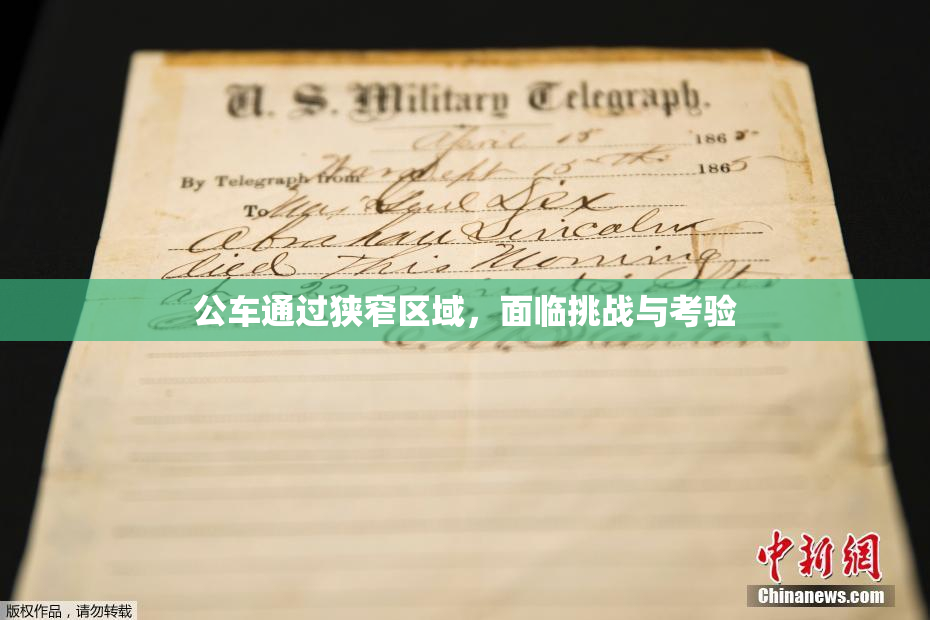 U. S. Military Telegraph.
April 15 1865
By Telegraph from War Dept 15th 1865
To Maj Genl Dix
Abraham Lincoln
died This Morning
at 22 minutes after
公车通过狭窄区域，面临挑战与考验
E. M. Stanton
中新网
Chinanews.com
版权作品，请勿转载